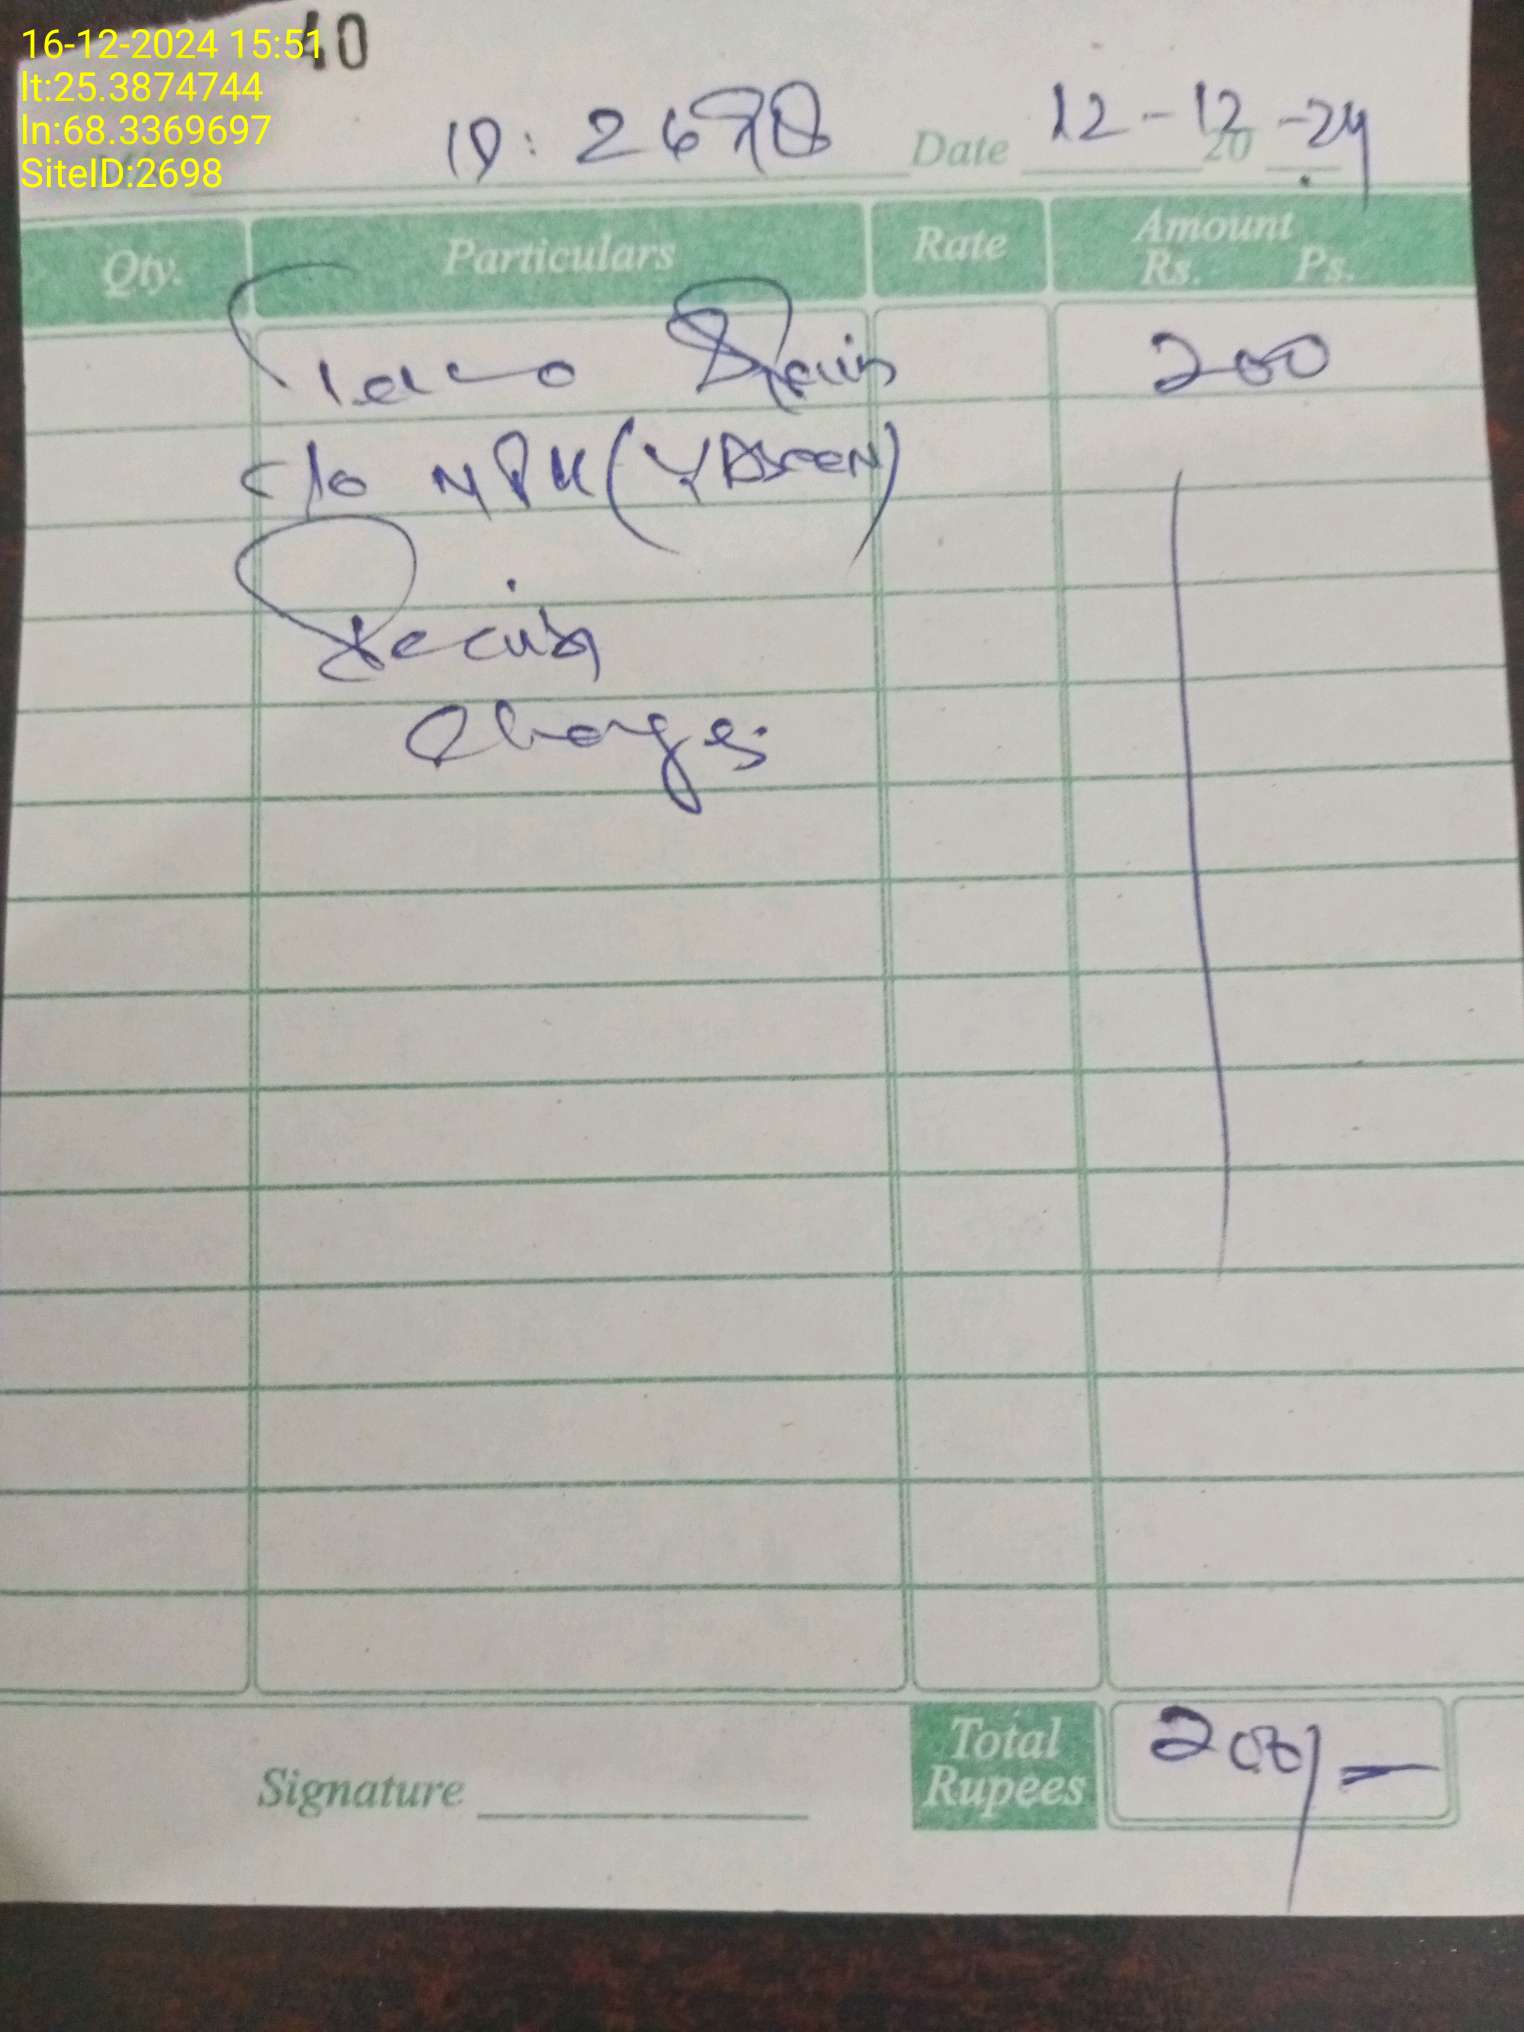 16-12-2024 15:51
lt:25.3874744
ln:68.3369697
SiteID:2698
10
ID: 2698 Date 12-12-2024
Qty. Particulars Rate Amount
Rs. Ps.
200
c/o MPK (YASEEN)
Charges
Total
Rupees 200/=
Signature